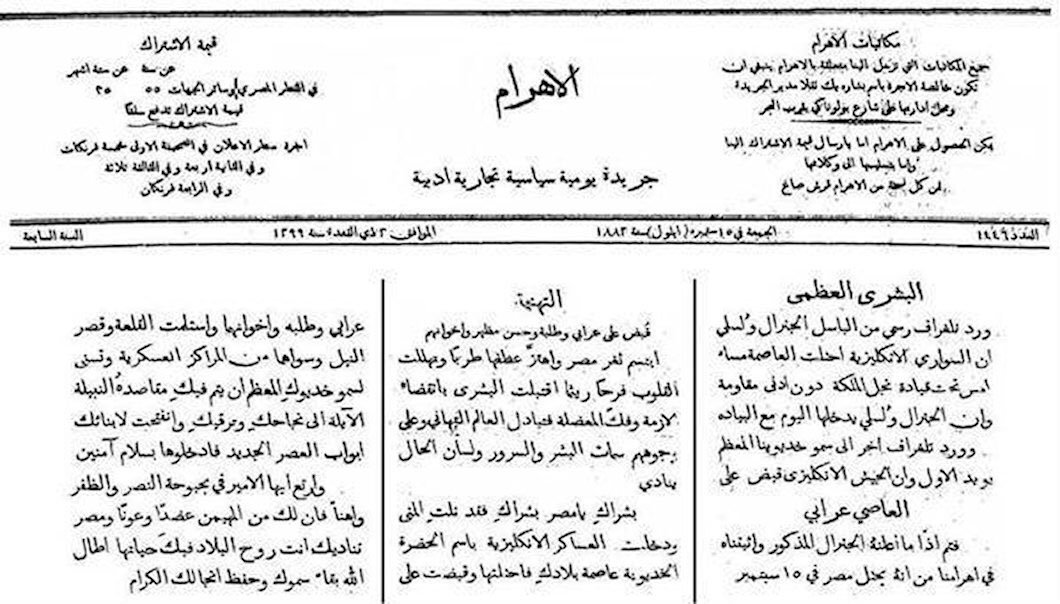 مكاتبات الاهرام
جميع المكاتبات التي ترسل الينا متعلقة بالاهرام ينبغي ان
تكون خالصة الاجرة باسم بشاره بك تقلا مدير الجريدة
ومحل ادارتها على شارع بولوناكي بقرب البحر
يمكن الحصول على الاهرام اما بارسال قيمة الاشتراك الينا
واما بتسليمها الى وكلائها
ثمن كل نسخة من الاهرام قرش صاغ
الاهرام
جريدة يومية سياسية تجارية ادبية
قيمة الاشتراك
عن سنة عن ستة اشهر
في القطر المصري او سائر الجهات ٥٥ ٣٥
قيمة الاشتراك تدفع سلفًا
اجرة سطر الاعلان في الصحيفة الاولى خمسة فرنكات
وفي الثانية اربعة وفي الثالثة ثلاثة
وفي الرابعة فرنكان
العدد ١٤٤٩
الجمعة في ١٥ سبتمبر (ايلول) سنة ١٨٨٢
الموافق ٣ ذي القعدة سنة ١٢٩٩
السنة السابعة
البشرى العظمى
ورد تلغراف رسمي من الباسل الجنرال وُلسلي
ان السواري الانكليزية احتلت العاصمة مساء
امس تحت قيادة نجل الملكة دون ادنى مقاومة
وان الجنرال وُلسلي يدخلها اليوم مع البياده
وورد تلغراف اخر الى سمو خديوينا المعظم
يؤيد الاول وان الجيش الانكليزي قبض على
العاصي عرابي
فتم اذًا ما اعلنهُ الجنرال المذكور واثبتناه
في اهرامنا من انهُ يحتل مصر في ١٥ سبتمبر
التهنية
قُبض على عرابي وطلبة وحسن مظهر واخوانهم
ابتسم ثغر مصر واهتزّ عطفها طربًا وتهللت
القلوب فرحًا ريثما اقتبلت البشرى بانقضاء
الازمة وفكّ المعضلة فتبادل العالم التهاني وعلى
وجوههم سمات البشر والسرور ولسان الحال
ينادي
بشراكِ يا مصر بشراكِ فقد نلتِ المنى
ودخلت العساكر الانكليزية باسم الحضرة
الخديوية عاصمة بلادكِ فاحتلتها وقبضت على
عرابي وطلبه واخوانهما واستلمت القلعة وقصر
النيل وسواها من المراكز العسكرية وتسنى
لسمو خديوكِ المعظم ان يتم فيكِ مقاصدهُ النبيلة
الآيلة الى نجاحكِ وترقيكِ وانفتحت لابنائك
ابواب العصر الجديد فادخلوها بسلام آمنين
وارتع ايها الامير في بحبوحة النصر والظفر
واهنأ فان لك من المهيمن عضدًا وعونًا ومصر
تناديك انت روح البلاد فبكَ حياتها اطال
الله بقاء سموك وحفظ انجالك الكرام